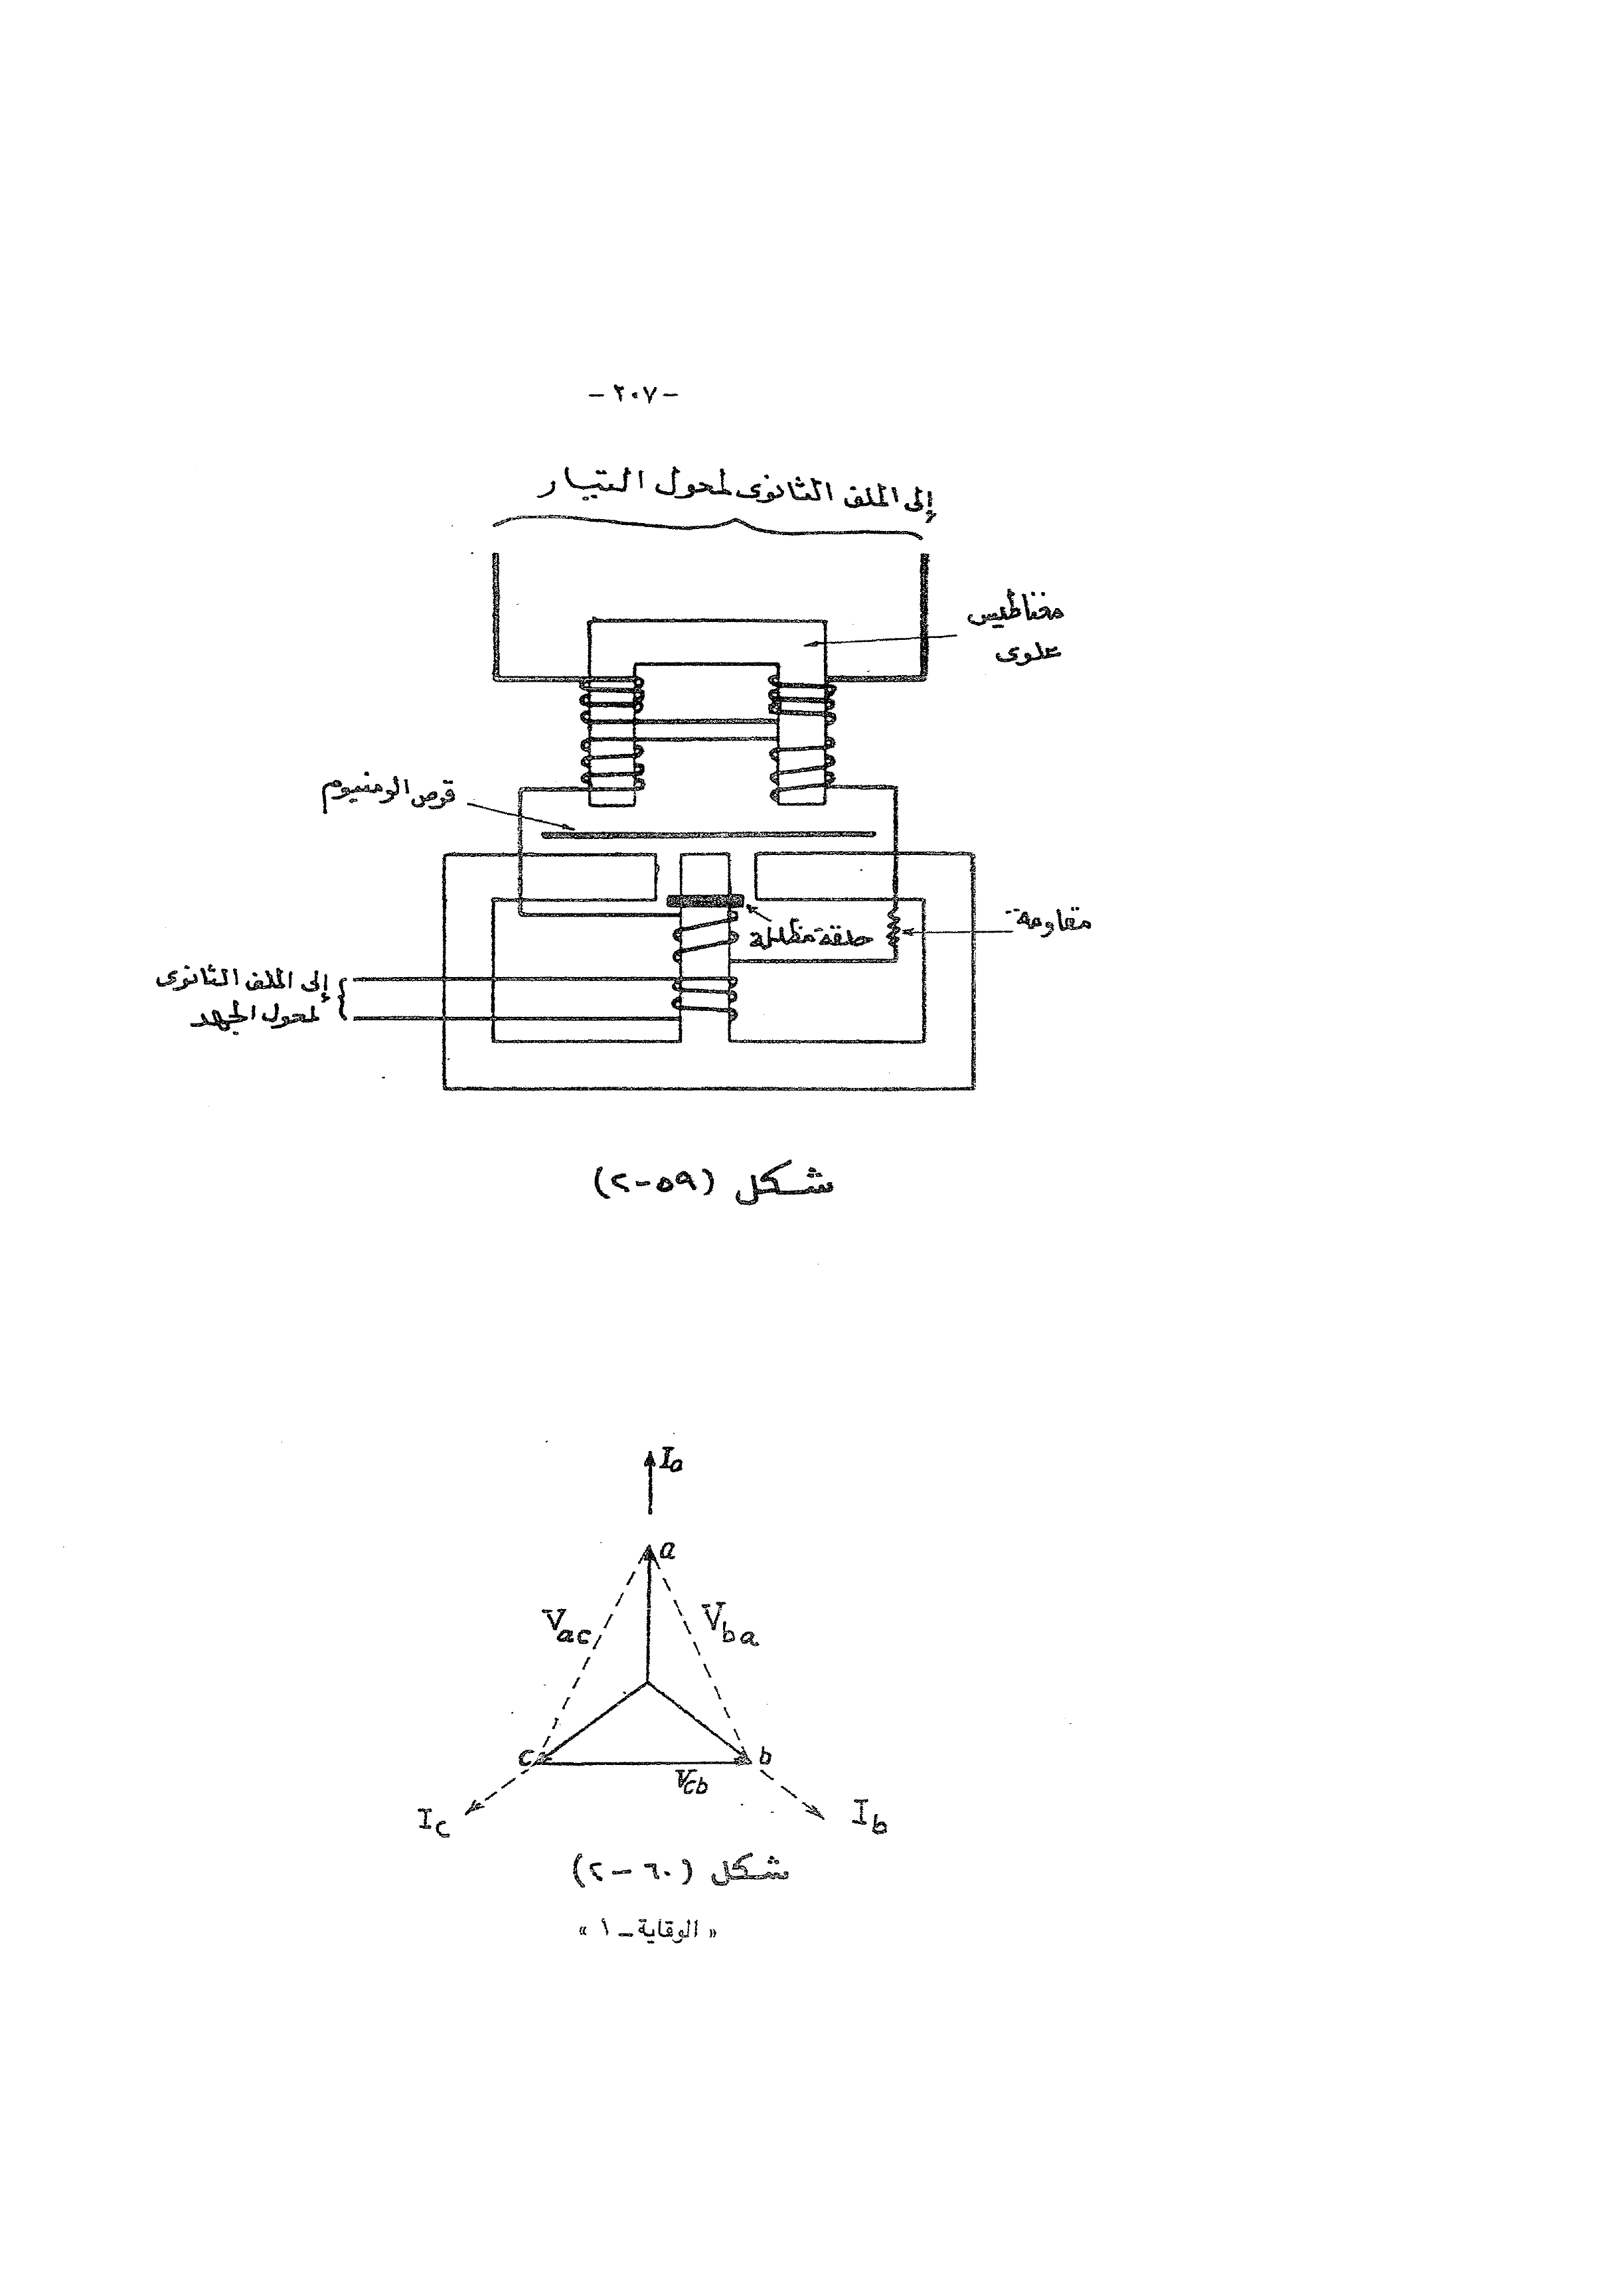 - ٢٠٧ -
إلى الملف الثانوى لمحول التيار
مغناطيس
علوى
قرص الومنيوم
حلقة مظللة
مقاومة
إلى الملف الثانوى
لمحول الجهد
شكل (٥٩-٢)
Ia
a
Vac
Vba
c
b
Vcb
Ic
Ib
شكل (٦٠-٢)
« الوقاية - ١ »